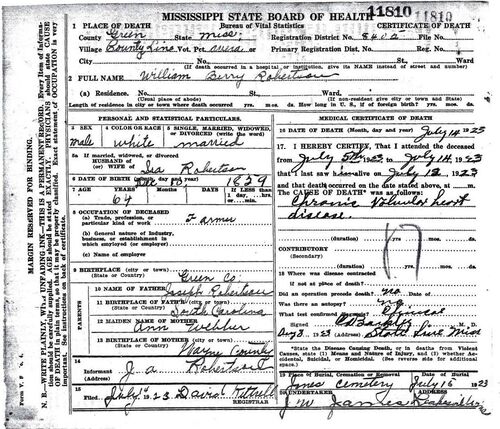 MISSISSIPPI STATE BOARD OF HEALTH 11810 11810
Bureau of Vital Statistics
CERTIFICATE OF DEATH
1 PLACE OF DEATH
County Green State Miss. Registration District No. 8402 File No.
Village County Line Vot. Pct. Primary Registration Dist. No. Reg. No. 1
City No. St. Ward
(If death occurred in a hospital or institution, give its NAME instead of street and number)
2 FULL NAME William Berry Robertson
(a) Residence. No. St. Ward.
(Usual place of abode) (If non-resident give city or town and State)
Length of residence in city or town where death occurred yrs. mos. ds. How long in U. S., if of foreign birth? yrs. mos. ds.
PERSONAL AND STATISTICAL PARTICULARS.
3 SEX
male
4 COLOR OR RACE
white
5 SINGLE, MARRIED, WIDOWED, or DIVORCED (write the word)
married
5a If married, widowed, or divorced
HUSBAND of
(or) WIFE of Robertson
6 DATE OF BIRTH (month, day and year) 1859
7 AGE Years Months Days If LESS than
64
1 day, hrs.
or min.
8 OCCUPATION OF DECEASED
(a) Trade, profession, or
particular kind of work Farmer
(b) General nature of Industry,
business, or establishment in
which employed (or employer)
(c) Name of employer
9 BIRTHPLACE (city or town) Green Co.
(State or Country)
PARENTS
10 NAME OF FATHER
Joseph Robertson
11 BIRTHPLACE OF FATHER (city or town)
(State or Country) South Carolina
12 MAIDEN NAME OF MOTHER
Ann
13 BIRTHPLACE OF MOTHER (city or town)
(State or Country) Wayne County
14
Informant J. A. Robertson
(Address)
15
Filed July 23 David
REGISTRAR
MEDICAL CERTIFICATE OF DEATH
16 DATE OF DEATH (Month, day and year) July 14 1923
17. I HEREBY CERTIFY, That I attended the deceased
from July 5th 1923 to July 14, 1923
that I last saw him alive on July 12 1923
and that death occurred on the date stated above, at m.
The CAUSE OF DEATH* was as follows:
Chronic Valvular heart
disease.
(duration) yrs. mos. ds.
CONTRIBUTORY
(Secondary)
(duration) yrs. mos. ds.
18 Where was disease contracted
if not at place of death?
Did an operation precede death? no Date of
Was there an autopsy? no
What test confirmed diagnosis? Clinical
Signed M. D.
Aug 3, 23 Address State Line Miss
*State the Disease Causing Death, or in deaths from Violent
Causes, state (1) Means and Nature of Injury, and (2) whether Accidental, Suicidal, or Homicidal. (See reverse side for additional space.)
19 Place of Burial, Cremation or Removal Date of Burial
Jones Cemetery July 15 1923
20 UNDERTAKER ADDRESS
J. W. James
MARGIN RESERVED FOR BINDING.
N. B.—WRITE PLAINLY, WITH UNFADING INK—THIS IS A PERMANENT RECORD. Every item of information should be carefully supplied. AGE should be stated EXACTLY. PHYSICIANS should state CAUSE OF DEATH in plain terms, so that it may be properly classified. Exact statement of OCCUPATION is very important. See instructions on back of certificate.
Form V. S. No. 4.